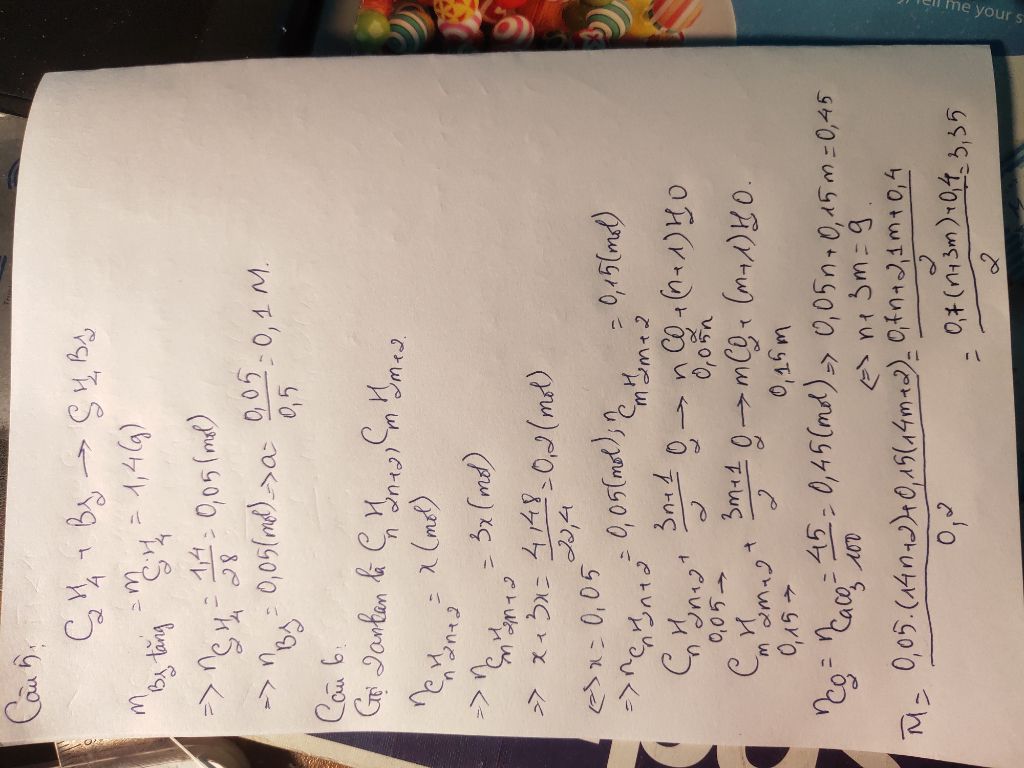 Câu 5:
C2H4 + Br2 → C2H4Br2
mBr2 tăng = mC2H4 = 1,4(g)
=> nC2H4 = 1,4/28 = 0,05(mol)
=> nBr2 = 0,05(mol) => a = 0,05/0,5 = 0,1M.
Câu 6:
Gọi 2 ankan là CnH2n+2, CmH2m+2.
nCnH2n+2 = x (mol)
=> nCmH2m+2 = 3x (mol)
=> x + 3x = 4,48/22,4 = 0,2(mol)
<=> x = 0,05
=> nCnH2n+2 = 0,05(mol), nCmH2m+2 = 0,15(mol)
CnH2n+2 + 3n+1/2 O2 → nCO2 + (n+1)H2O
0,05 → 0,05n
CmH2m+2 + 3m+1/2 O2 → mCO2 + (m+1)H2O.
0,15 → 0,15m
nCO2 = nCaCO3 = 45/100 = 0,45(mol) => 0,05n + 0,15m = 0,45
<=> n + 3m = 9.
M̄ = 0,05.(14n+2)+0,15(14m+2)/0,2 = 0,7n+2,1m+0,4/2
= 0,7(n+3m)+0,4/2 = 3,35
tell me your s